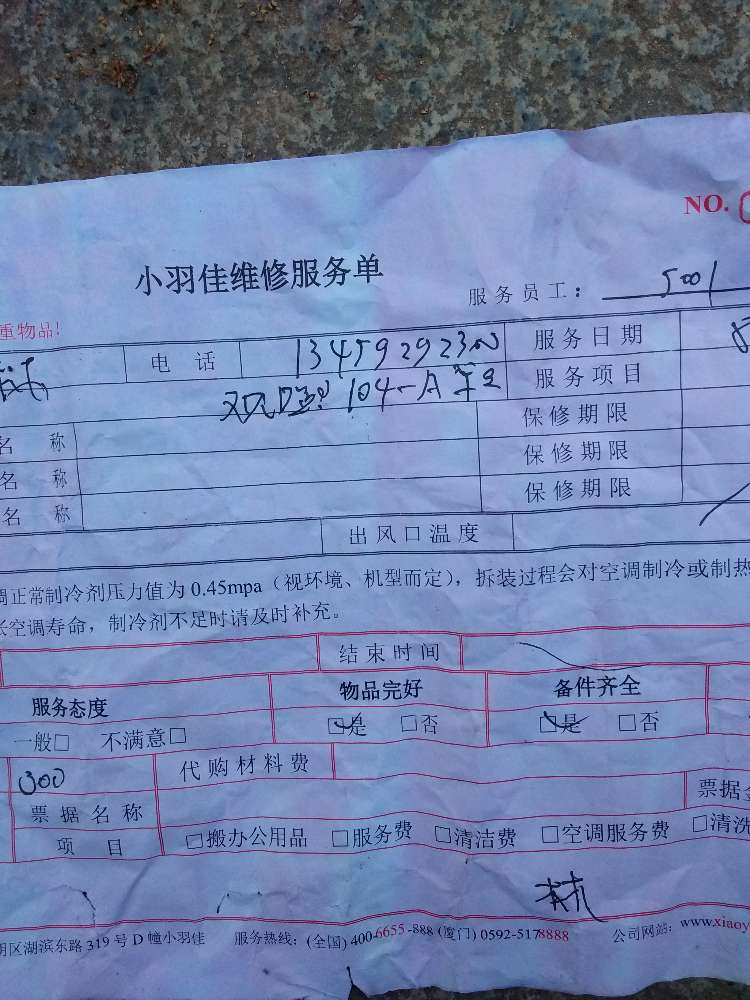 NO.
小羽佳维修服务单
服务员工： 5001
重物品！
电 话 服务日期
104-A 服务项目
名 称 保修期限
名 称 保修期限
名 称 保修期限
出风口温度
调正常制冷剂压力值为 0.45mpa（视环境、机型而定），拆装过程会对空调制冷或制热
长空调寿命，制冷剂不足时请及时补充。
结束时间
服务态度 物品完好 备件齐全
一般□ 不满意□ ☑是 □否 ☑是 □否
300 代购材料费
票据名称 票据金
项 目 □搬办公用品 □服务费 □清洁费 □空调服务费 □清洗
明区湖滨东路 319 号 D 幢小羽佳 服务热线：(全国) 400-6655-888 (厦门) 0592-5178888 公司网站：www.xiaoy